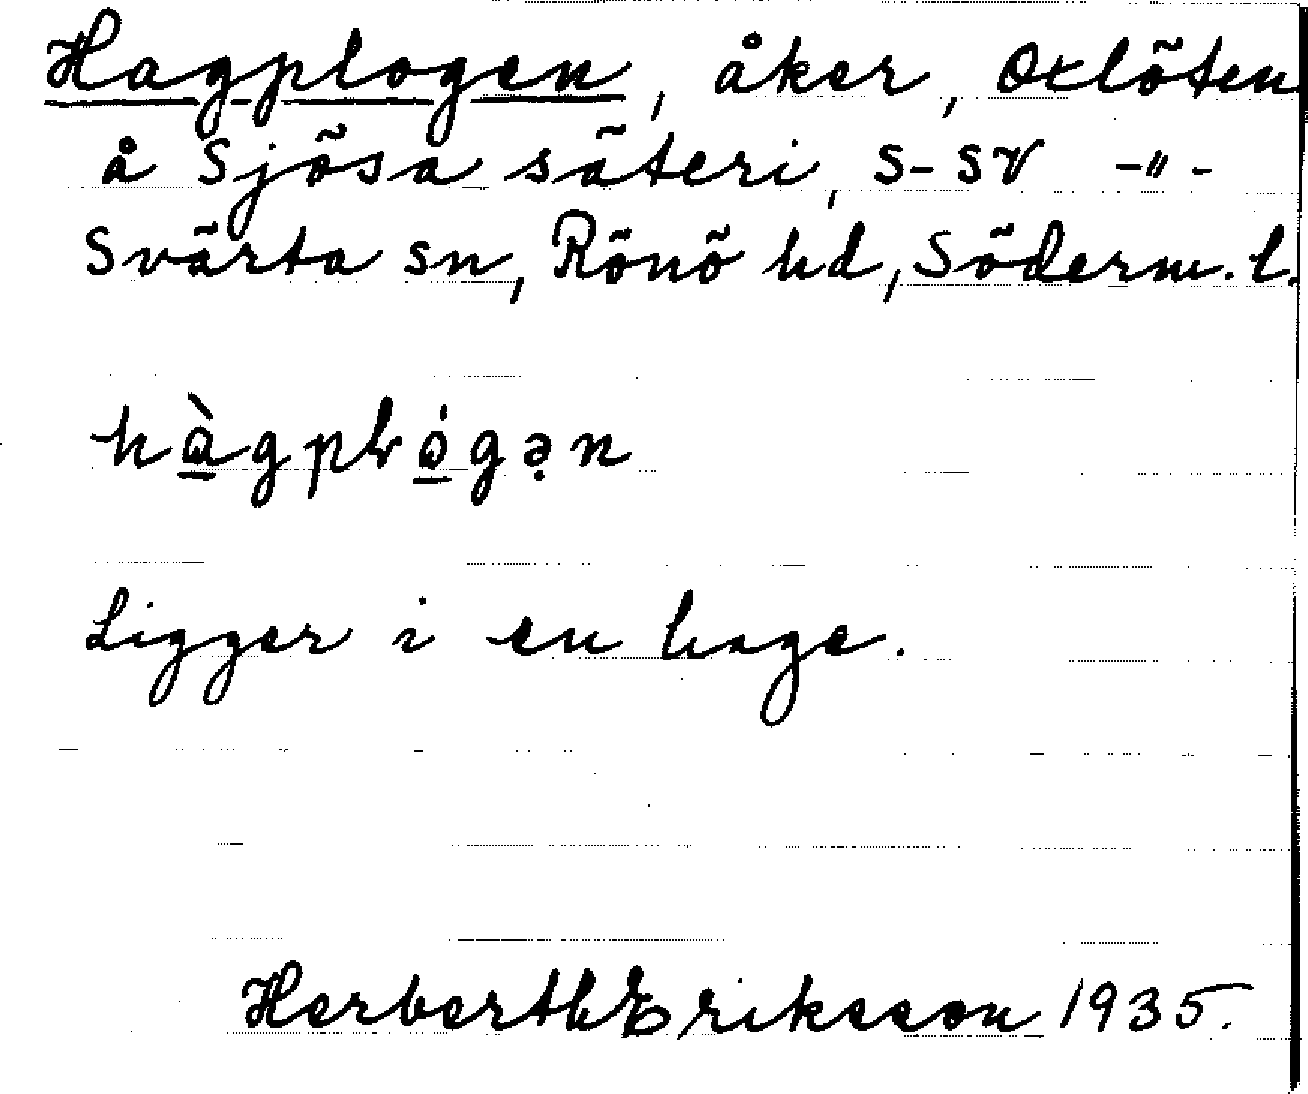 Hagplogen, åker, Oxlöten
å Sjösa säteri, S-SV -"-
Svärta sn, Rönö hd, Söderm. l.
hàgplógən
Ligger i en hage.
Herberth Eriksson 1935.